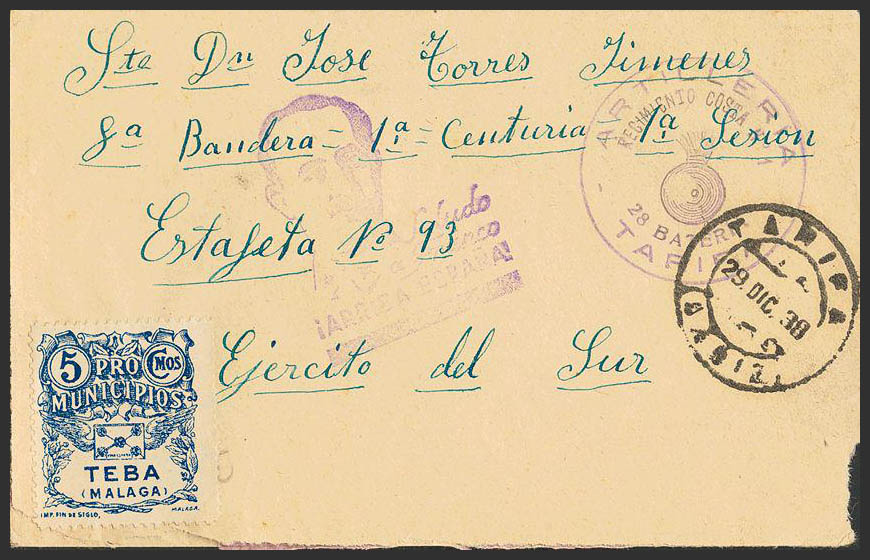 Ste Dn Jose Torres Jimenes
8a Bandera = 1a = Centuria 1a Sesion
Estafeta Nº 93
Ejercito del Sur
ARTILLERIA
REGIMIENTO COSTA Nº 1
28 BATERIA
TARIFA
Saludo
a Franco
¡ARRIBA ESPAÑA!
TARIFA
29 DIC. 38
5 PRO Cmos
MUNICIPIOS
TEBA
(MALAGA)
IMP. FIN DE SIGLO, MALAGA.